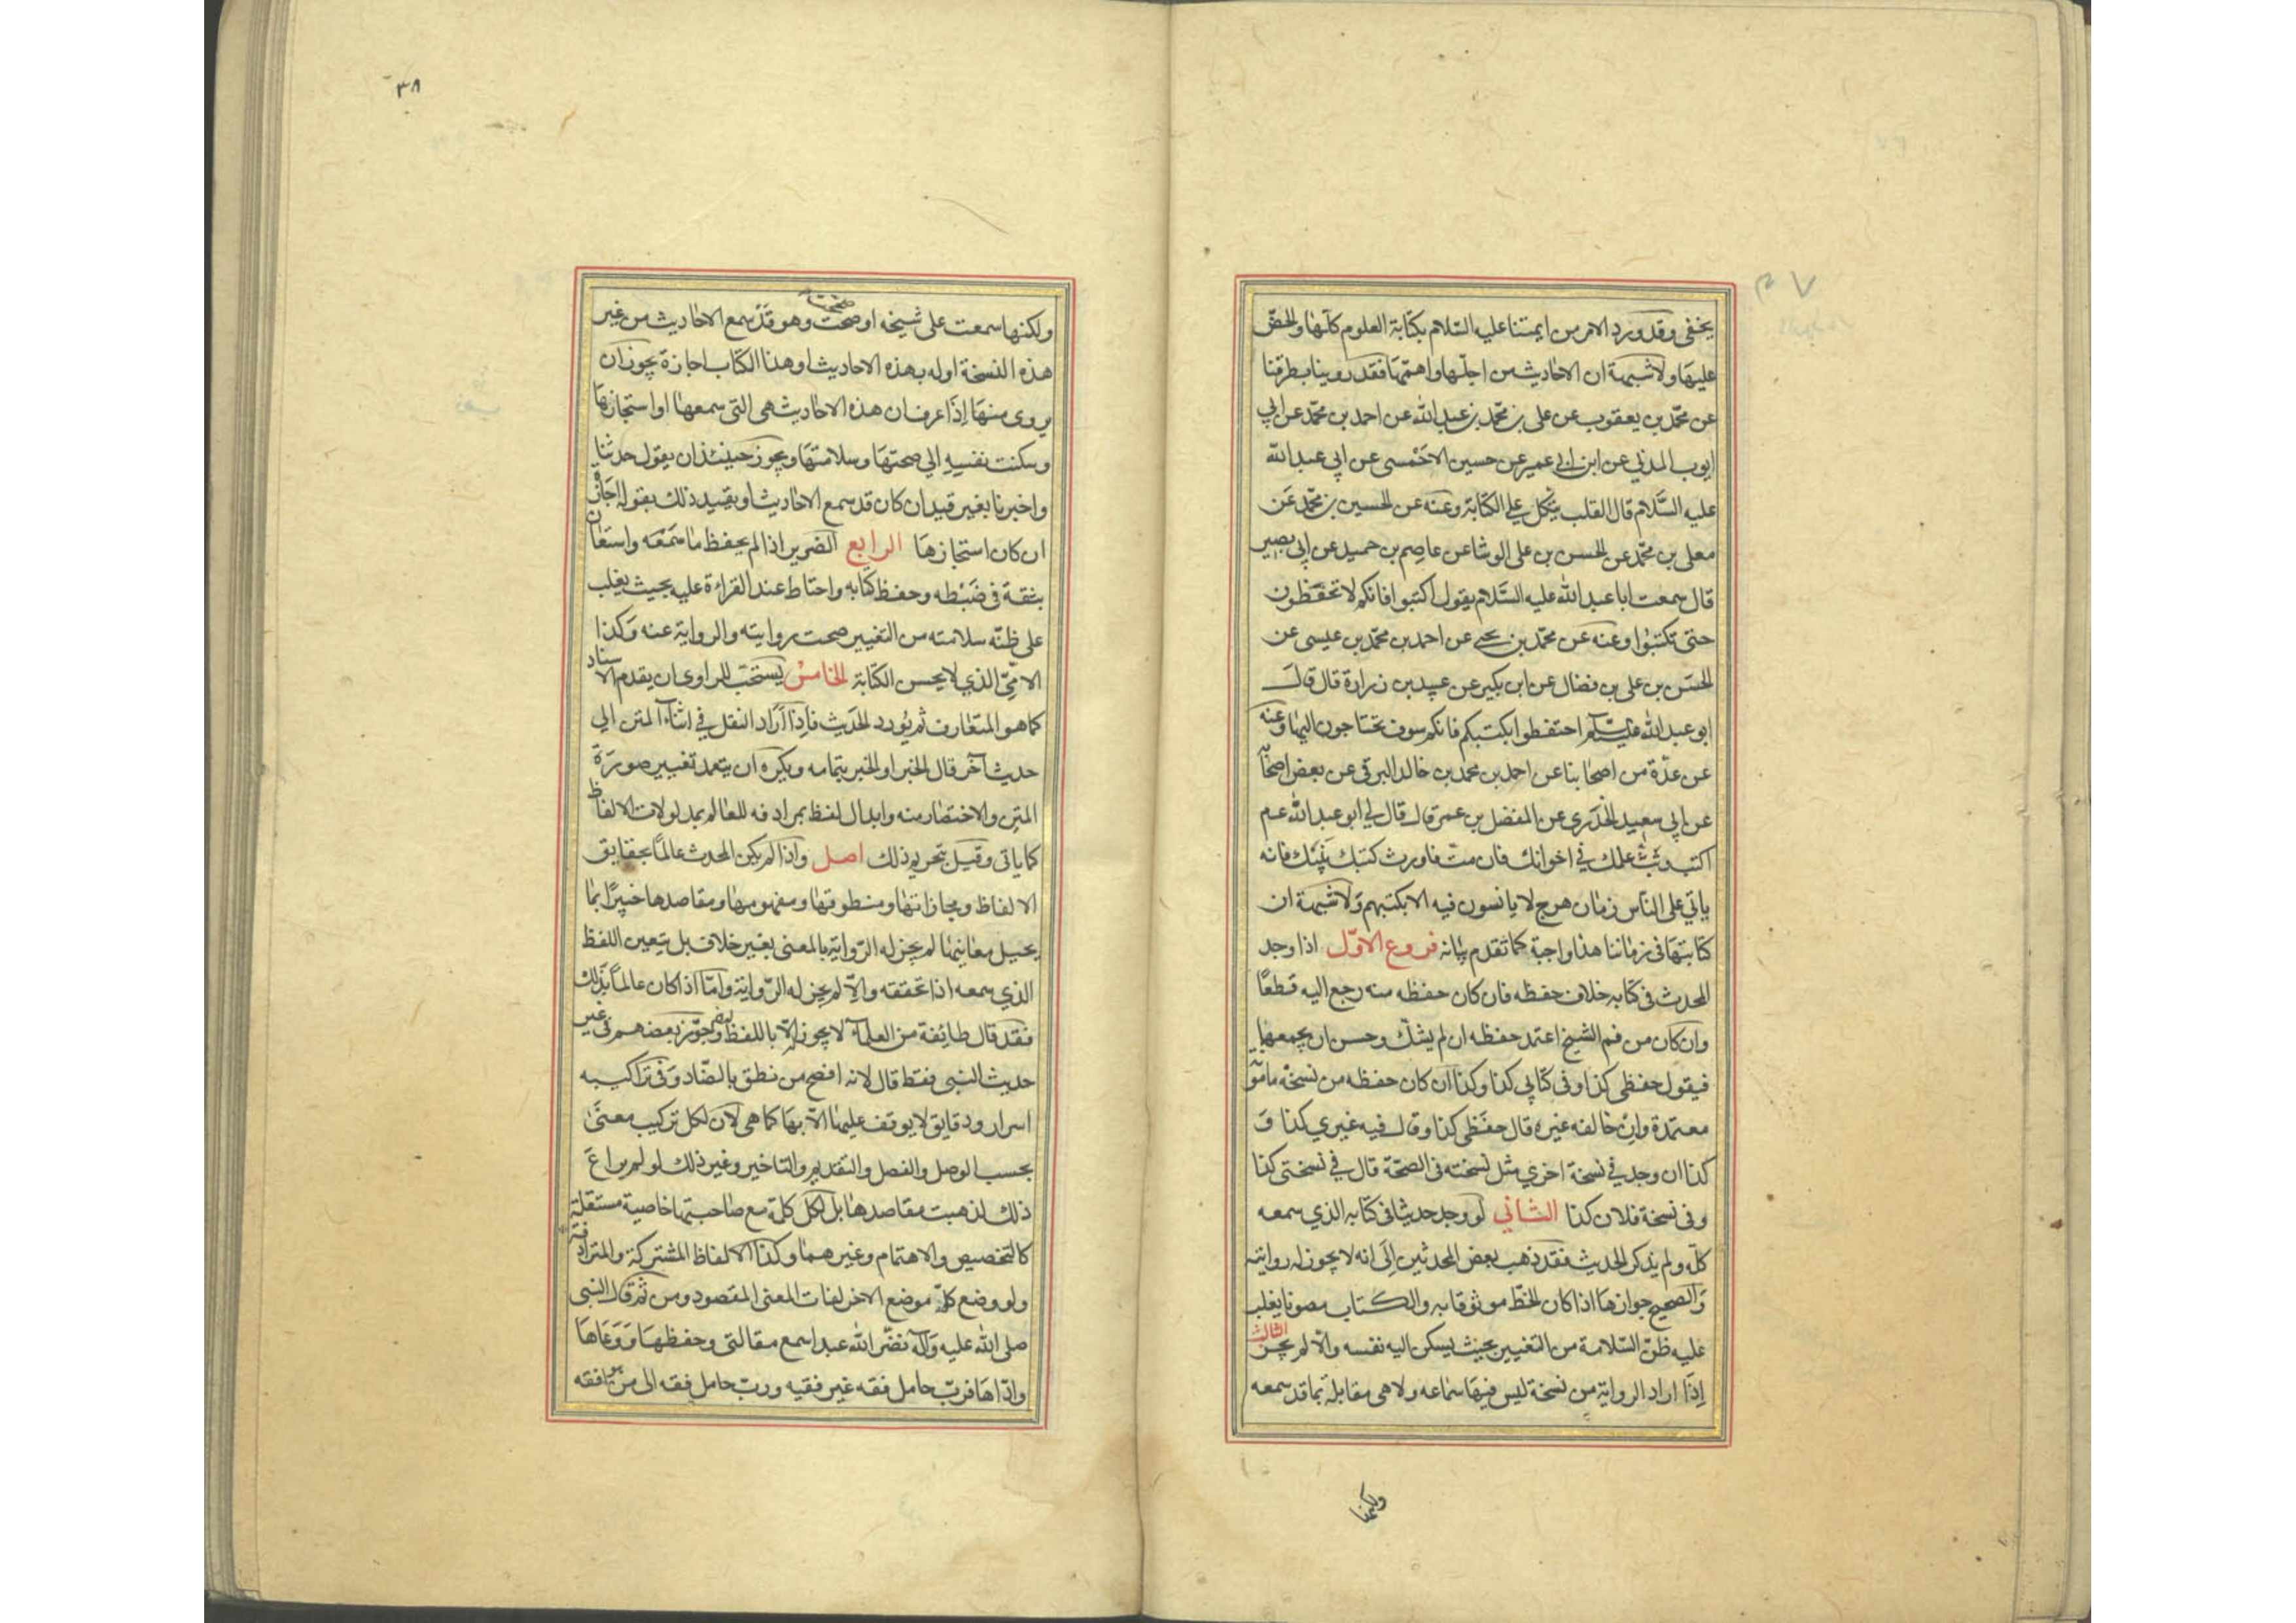 يخفى وقد ورد الامر من ايمتنا عليه السّلام بكتابة العلوم كلّها والحضّ
عليها ولا شبهة ان الاحاديث من اجلّها واهمّها فقد روينا بطرقنا
عن محمّد بن يعقوب عن على بن محمّد بن عبد الله عن احمد بن محمّد عن ابي
ايوب المدني عن ابن ابي عمير عن حسين الاحمسى عن ابي عبد الله
عليه السَّلام قال القلب يتكل على الكتابة وعنه عن الحسين بن محمّد عَن
معلى بن محمّد عن الحسن بن على الوشا عن عاصم بن حميد عن ابي بصير
قال سمعت ابا عبد الله عليه السَّلام يقول اكتبوا فانكم لا تحفظون
حتى تكتبوا وعنه عن محمّد بن يحيى عن احمد بن محمّد بن عيسى عن
الحسَن بن على بن فضال عن ابن بكير عن عبيد بن زرارة قال قال
ابو عبد الله عليه السلم احتفظوا بكتبكم فانكم سوف تحتاجون اليها وعنه
عن عدّة من اصحابنا عن احمد بن محمد بن خالد البرقى عن بعض اصحابه
عن ابي سعيد الخدرى عن المفضل بن عمر قال قال لي ابو عبد الله عم
اكتب وبُثّ علمك في اخوانك فان متّ فاورث كتبك بَنِيك فانه
ياتي على النّاس زمان هرج لا يانسون فيه الا بكتبهم وَلا شبهة ان
كتابتها فى زماننا هذا واجبة كما تقدم بيانه فروع الاوّل اذا وجد
المحدث فى كتابه خلاف حفظه فان كان حفظه منه رجع اليه قطعًا
وان كان من فم الشيخ اعتمد حفظه ان لم يشكّ وحسن ان يجمعهما
فيقول حفظى كذا وفى كتابي كذا وكذا ان كان حفظه من نسخة مامونة
معتمدة وان خالفه غيره قال حفظى كذا وقال فيه غيري كذا وَ
كذا ان وجد في نسخة اخري مثل نسخته فى الصحّة قال في نسختى كذا
وفى نسخة فلان كذا الثاني لو وجد حديثا فى كتابه الذي سمعه
كلّه ولم يذكر الحديث فقد ذهب بعض المحدثين اِلَى انه لا يجوز له روايته
وَالصحيح جوازها اذا كان الخطّ موثوقا به والكتاب مصونا يغلب
عليه ظنّ السّلامة من التغيير بحيث يسكن اليه نفسه والّا لم يجز الثالث
اِذَا اراد الرواية من نسخة ليس فيها سماعه ولا هى مقابلة بما قد سمعه
ولكنها
٣٨
ولكنها سمعت على شيخه او صحت وهو قدْ سمع الاحاديث من غير
هذه النسخة اوله بهذه الاحاديث او هذا الكتاب اجازة يجوز ان
يروى منها اِذَا عرف ان هذه الاحاديث هى التى سمعها او استجازها
وسكنت نفسه الي صحتها وسلامتها ويجوز حينئذ ان يقول حدثنا
واخبرنا بغير قيد ان كان قد سمع الاحاديث او يقيد ذلك بقوله اجازة
ان كان استجازها الرابع الضرير اذا لم يحفظ ما سَمعَه واستعان
بثقة فى ضَبْطه وحفظ كتابه واحتاط عند القراءة عليه بحيث يغلب
على ظنّه سلامته من التغيير صحت روايته والرواية عنه وَكذا
الامّيّ الذي لا يحسن الكتابة الخامسْ يستحَبّ للراوى ان يقدم الاسناد
كما هو المتعارف ثم يُورد الحَديث فاِذَا اَرَاد النقل في اثناء المتن الي
حديث آخر قال الخبر او الخبر بتمامه ويكره ان يتعمد تغيير صورَة
المتن والاختصار منه وابدال لفظ بمرادفه للعالم بمدلولات الالفاظ
كما ياتى وقيل بتحريم ذلك اصل واذا لم يكن المحدث عالمًا بحقايق
الالفاظ ومجازاتها ومنطوقها ومفهومها ومقاصدها خبيرًا بما
يحيل معانيها لم يجز له الرّواية بالمعنى بغير خلاف بل يتعين اللفظ
الذي سمعه اذا تحققه والّا لم يجز له الرّواية وامّا اذا كان عالمًا بذلك
فقد قال طائفة من العلماء لا يجوز الّا باللفظ وجوّز بعضهم فى غير
حديث النبى فقط قال لانه افصح من نطق بالضّاد وَفى تراكيبه
اسرار ودقايق لا يوقف عليها الّا بها كما هى لان لكل تركيب معنًى
بحسب الوصل والفصل والتقديم والتاخير وغير ذلك لو لم يراعَ
ذلك لذهبت مقاصدها بل لكل كلمة مع صاحبتها خاصية مستقلة
كالتخصيص والاهتمام وغيرهما وكذا الالفاظ المشتركة والمترادفة
ولو وضع كلّ موضع الاخر لفات المعنى المقصود ومن ثم قال النبى
صلى الله عليه وآله نضّر الله عبدا سمع مقالتى وحفظها وَوَعَاها
وادّاها فربّ حامل فقه غير فقيه وربّ حامل فقه الى من هو افقه